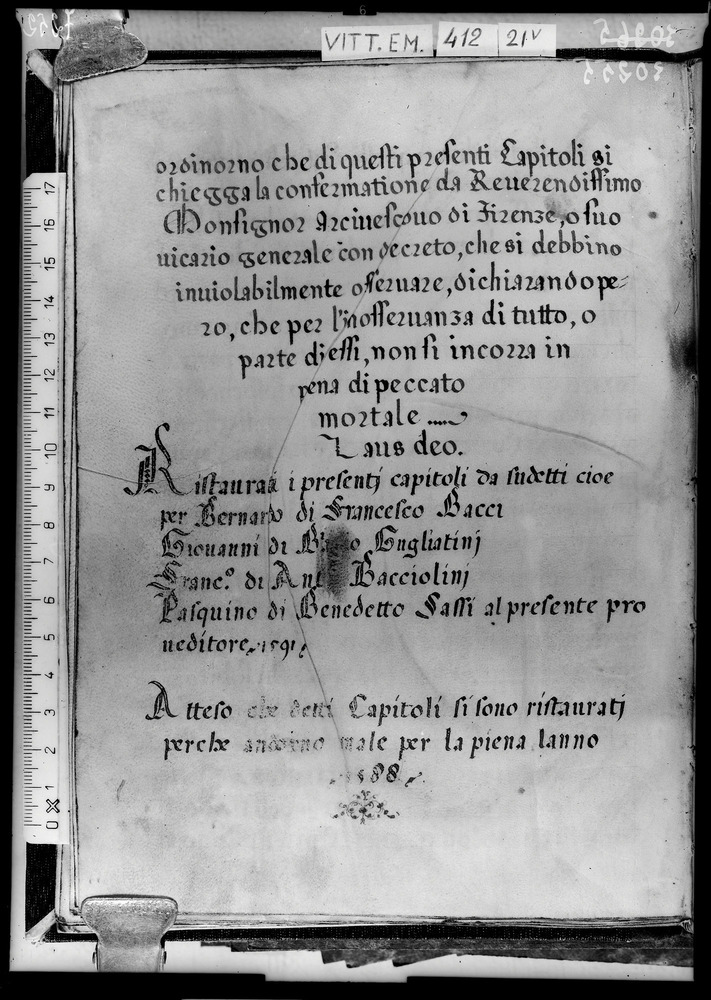 VITT. EM. 412 21v
ordinorno che di questi presenti Capitoli si
chiegga la confermatione da Reuerendissimo
Monsignor Arciuescouo di Firenze, o suo
uicario generale con decreto, che si debbino
inuiolabilmente osseruare, dichiarando pe-
ro, che per l'inosseruanza di tutto, o
parte di essi, non si incorra in
pena di peccato
mortale .....
Laus deo.
Ristaurati i presentj capitoli da sudetti cioe
per Bernardo di Francesco Bacci
Giouanni di Gugliatinj
Franc.o di Bacciolinj
Pasquino di Benedetto Sassi al presente pro
ueditore, 1591,
Atteso che detti Capitoli si sono ristauratj
perche andorno male per la piena lanno
1588
17
16
15
14
13
12
11
10
9
8
7
6
5
4
3
2
1
0